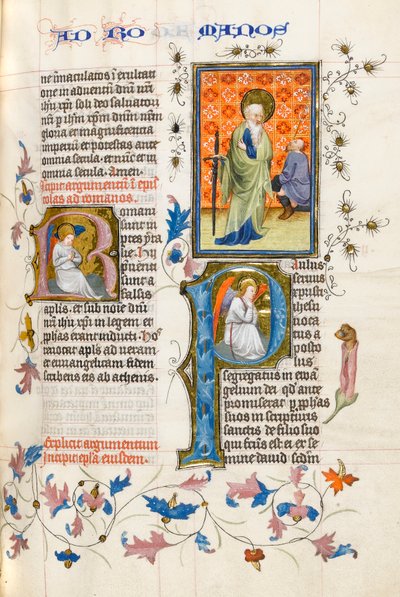 AD RO DE MANOS
ne īmaculatos ī exultati
one in adventū dn̄i n̄ri
ihū xp̄i soli deo salvatori
n̄ro p̄ ihm̄ xpm̄ dnm̄ n̄rm̄
gloria et magnificentia
imperiū et potestas ante
omnia secula et nūc et in
omnia secula. Amen.
Incipit argumentū ī epis
tolas ad romanos.
Romani
sunt in
partes yta
lie hii
p̄venti
sunt a
falsis
aplis. et sub noīe dn̄i
n̄ri ihū xp̄i in legem et
p̄phas erant inducti. hos
revocat apl̄s ad veram
et evvangelicam fidem
scribens eis ab athenis.
Explicit argumentum
Incipit epl̄a eiusdem.
Paulus
servus
xp̄i ihesu
voca
tus a
posto
lus
segregatus in evā
gelium dei qd̄ ante
promiserat p̄ p̄phās
suos in scripturis
sanctis de filio suo
qui factus est ei ex se
mine david scdm̄